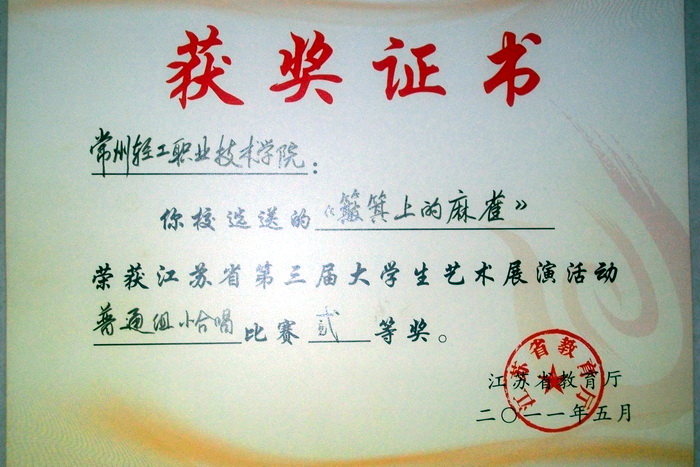 获奖证书
常州轻工职业技术学院：
你校选送的《簸箕上的麻雀》
荣获江苏省第三届大学生艺术展演活动
普通组小合唱比赛贰等奖。
江苏省教育厅
江苏省教育厅
二〇一一年五月